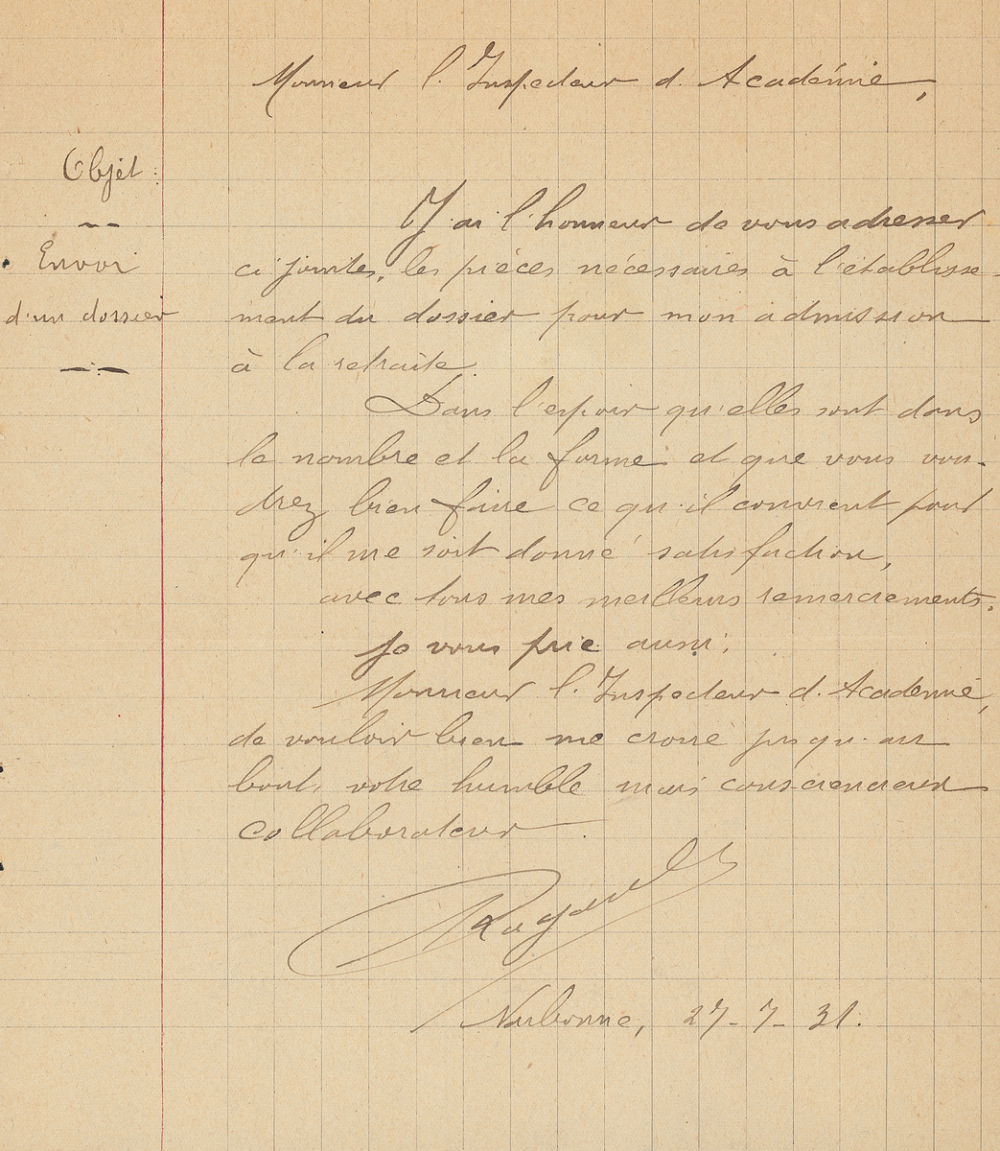 Monsieur l'Inspecteur d'Académie,
Objet :
Envoi
d'un dossier
J'ai l'honneur de vous adresser
ci jointes, les pièces nécessaires à l'établisse-
ment du dossier pour mon admission
à la retraite.
Dans l'espoir qu'elles sont dans
le nombre et la forme et que vous vou-
drez bien faire ce qu'il convient pour
qu'il me soit donné satisfaction,
avec tous mes meilleurs remerciements,
je vous prie aussi,
Monsieur l'Inspecteur d'Académie,
de vouloir bien me croire jusqu'au
bout, votre humble mais consciencieux
collaborateur
Narbonne, 27-7-31.